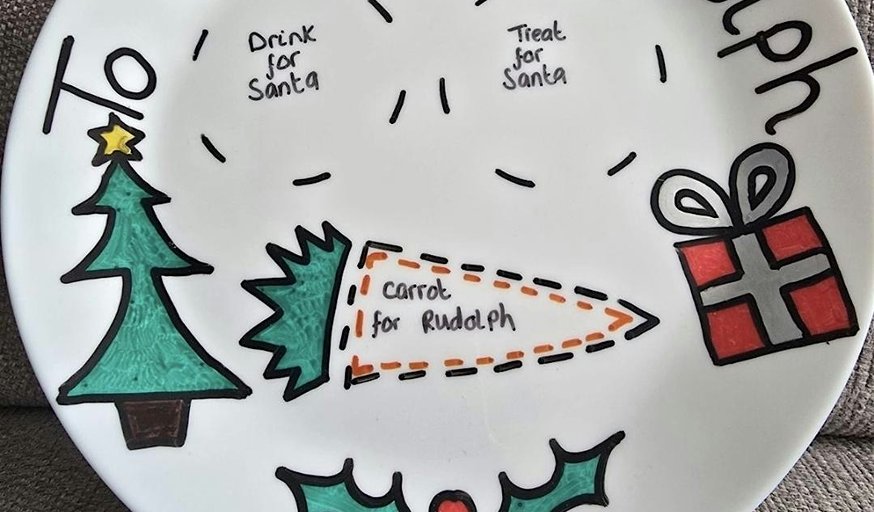 To
Drink
for
Santa
Treat
for
Santa
carrot
for Rudolph